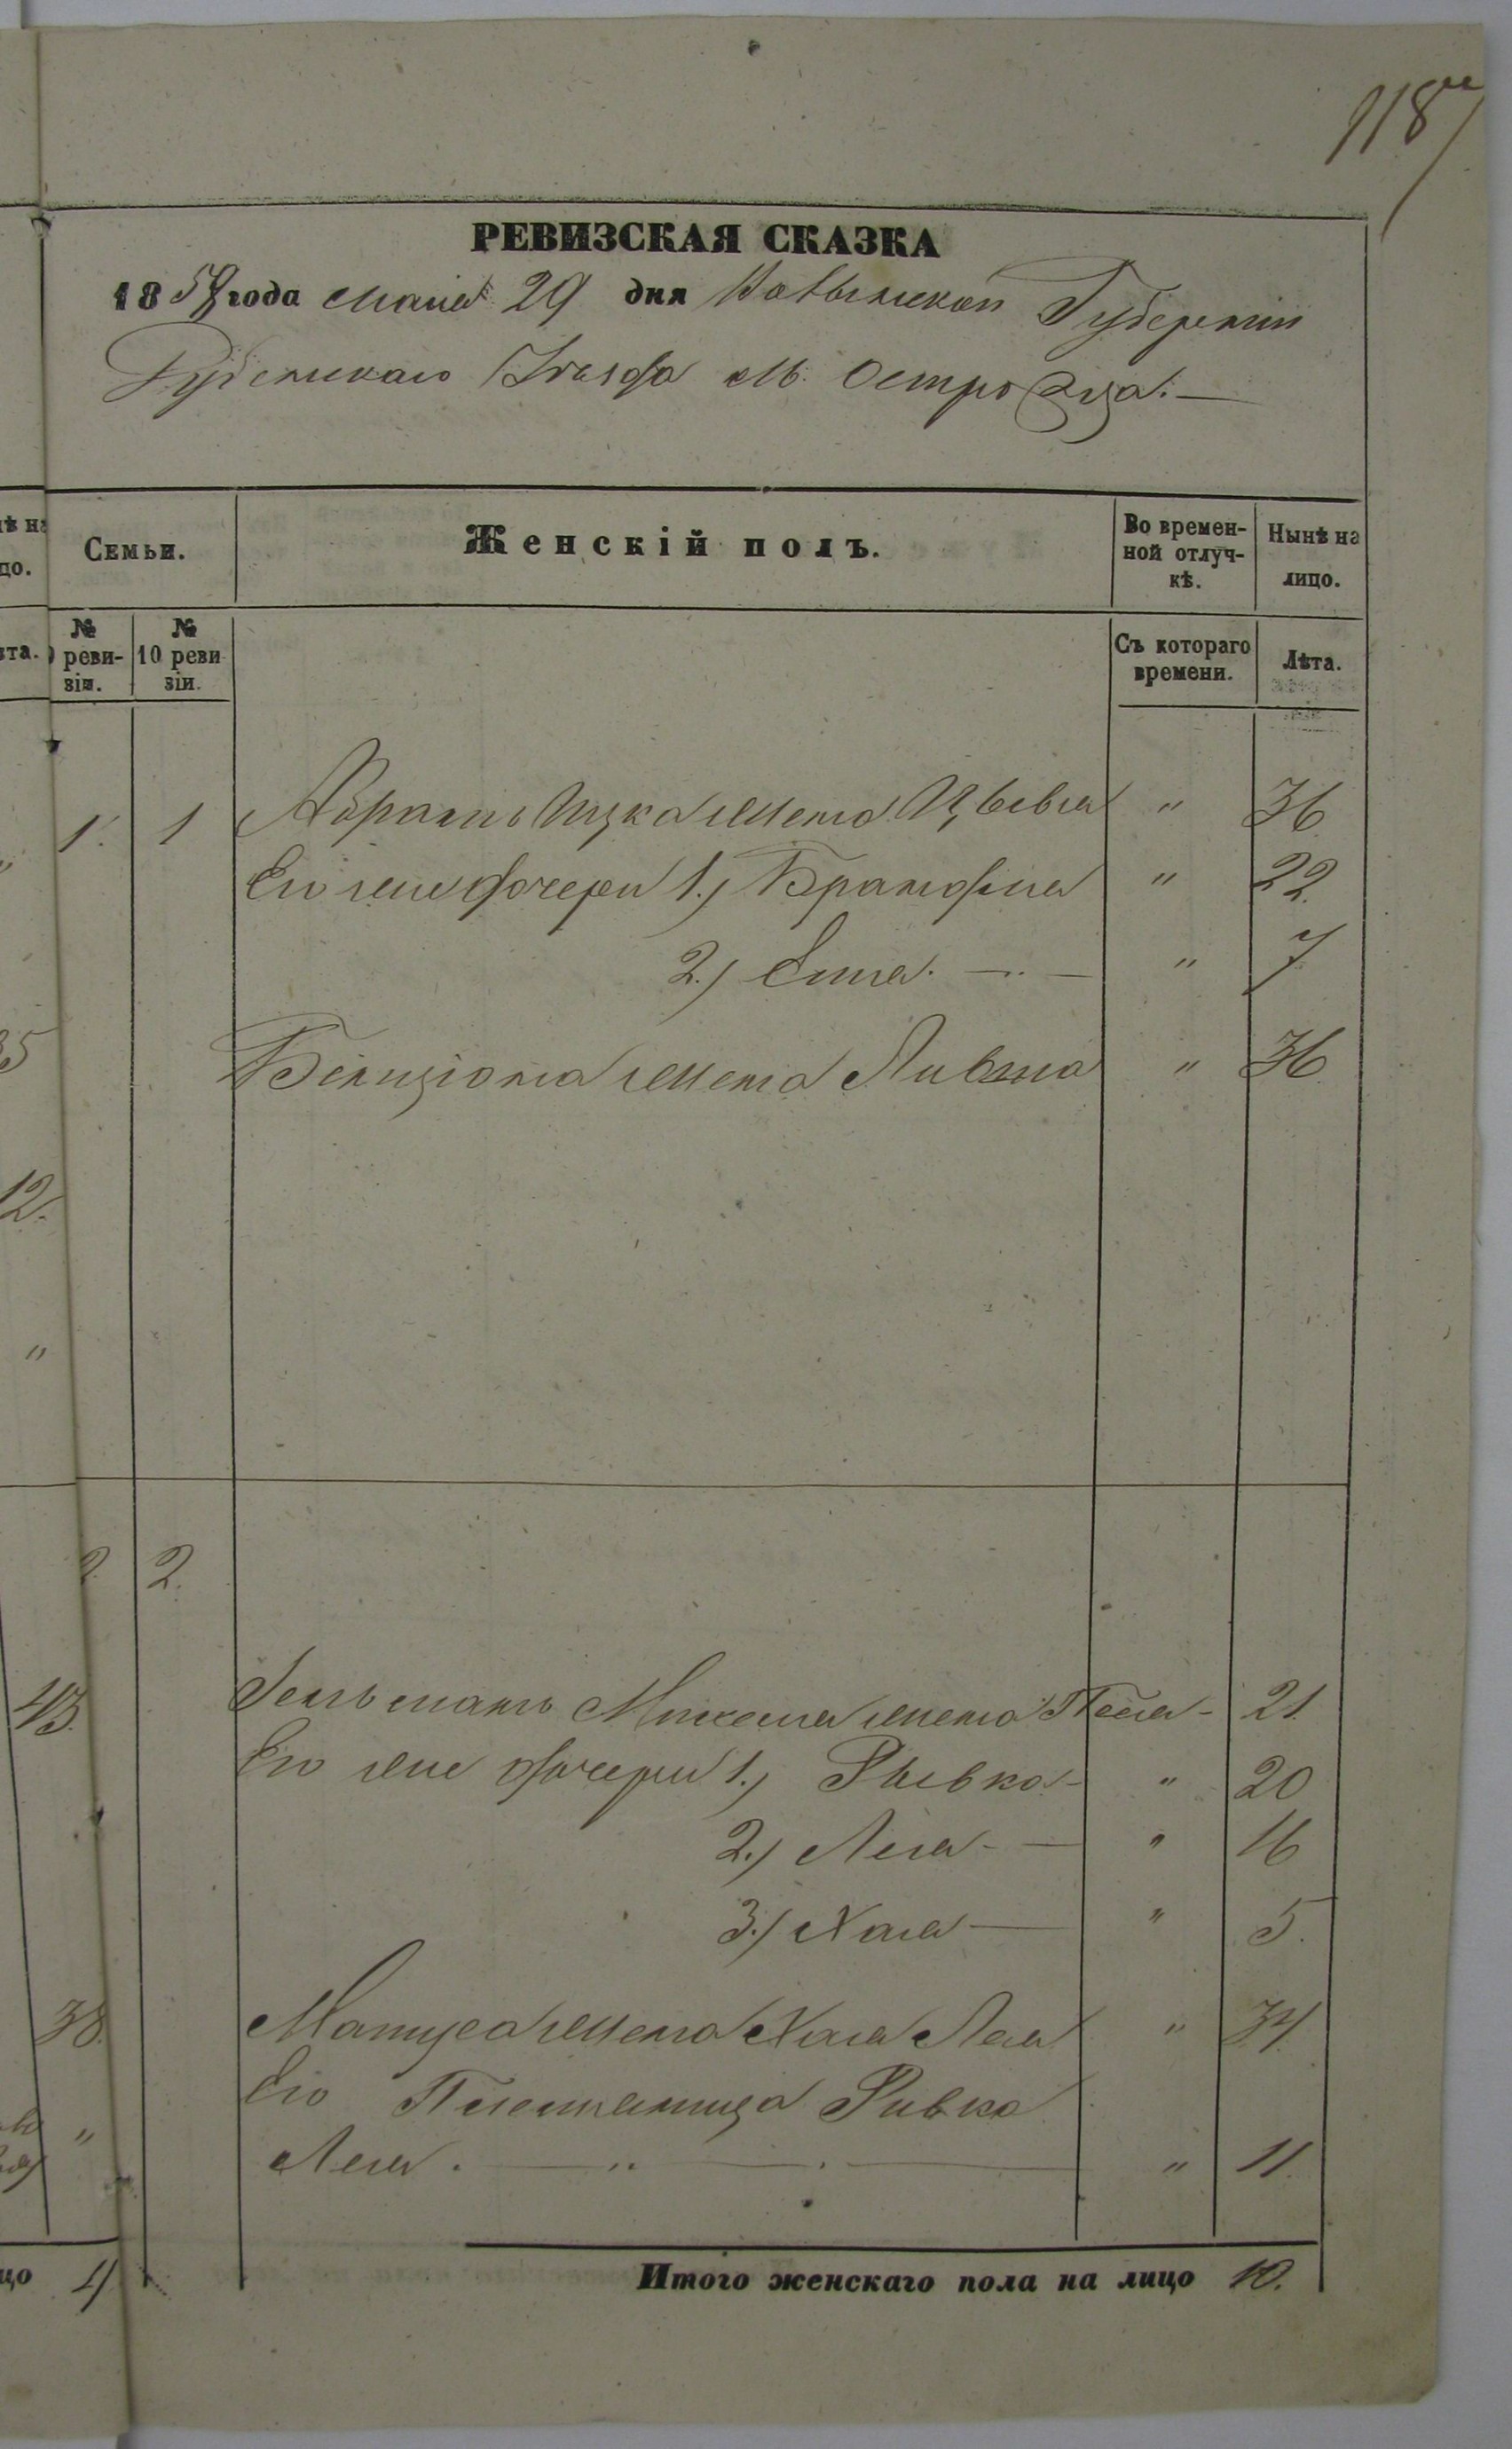 118
РЕВИЗСКАЯ СКАЗКА
1858 года Маія 29 дня Волынской Губерніи
Дубенскаго Уѣзда М. Островца. —
Семьи.
Женскій полъ.
Во времен-
ной отлуч-
кѣ.
Нынѣ на
лицо.
№
реви-
зіи.
№
10 реви
зіи.
Съ котораго
времени.
Лѣта.
1. 1 Абрамъ Ицка жена Цывья " 36
Его же дочери 1.) Брандля " 22.
2.) Ентя. — " 7
Бенціона жена " 36
2 2.
Гельманъ жена Песя - 21.
Его же дочери 1.) Рывка - " 20
2.) Лея - — " 16
3.) Хая — " 5.
Матуса жена Хая Лея " 34
Его Племяница Ривка
Лея. — " — . — " 11.
Итого женскаго пола на лицо 10.
35
12.
"
43.
38.
"
цо 4